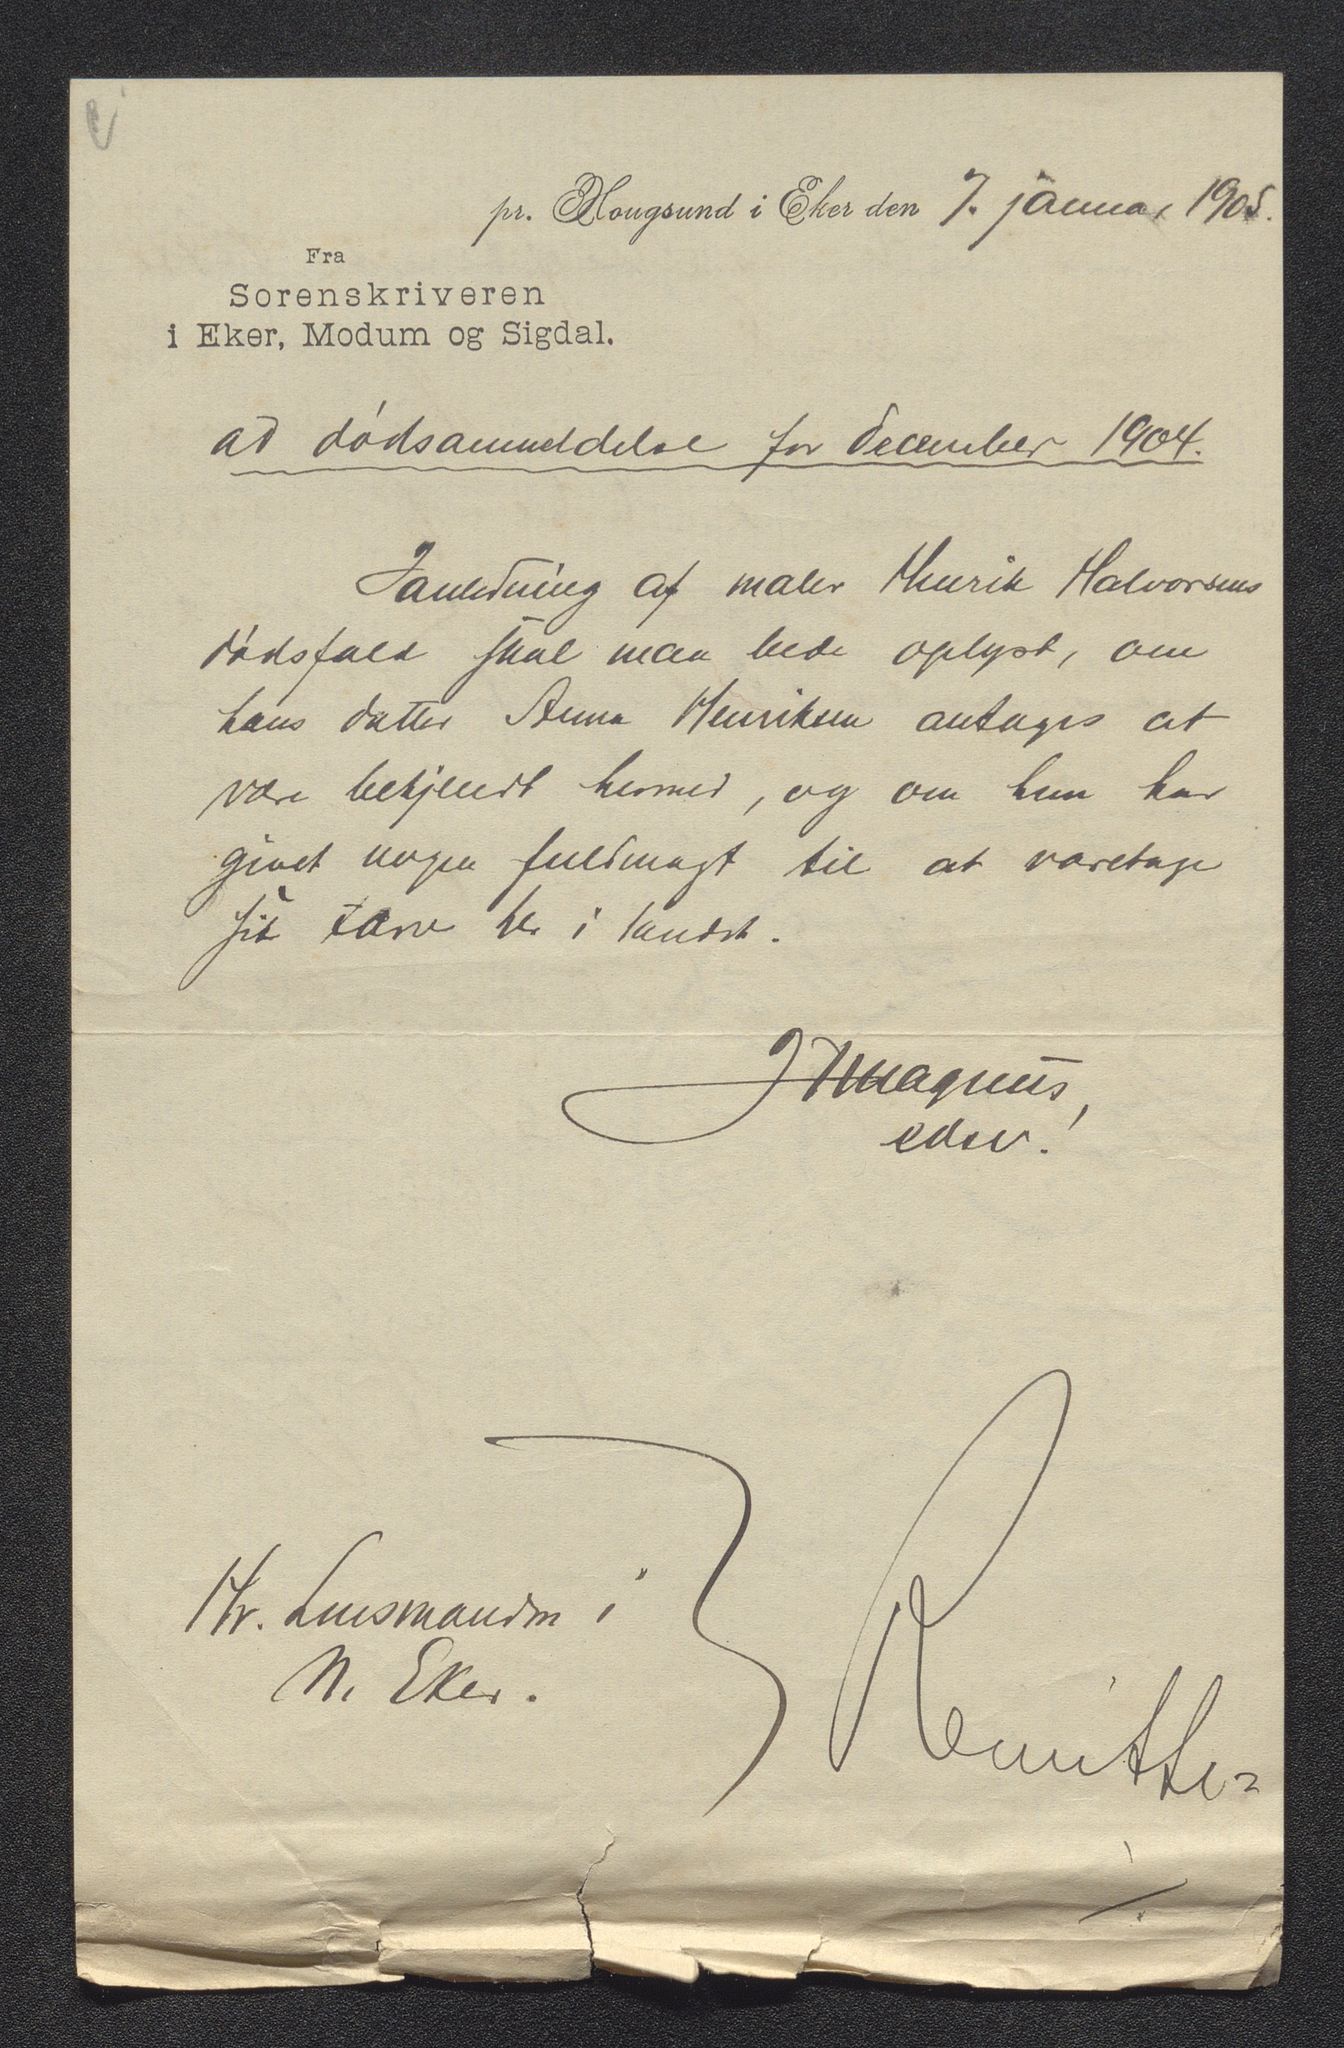 pr. Hougsund i Eker den 7. januar 1905.
Fra
Sorenskriveren
i Eker, Modum og Sigdal.
ad dødsanmeldelse for december 1904.
I anledning af maler Henrik Halvorsens
dødsfald skal man bede oplyst, om
hans datter Anna Henriksen antages at
være bekjendt hermed, og om hun har
givet nogen fuldmagt til at varetage
sit tarv her i landet.
J Magnus,
edsv.
Hr. Lensmanden i
N. Eker.
Remitte-